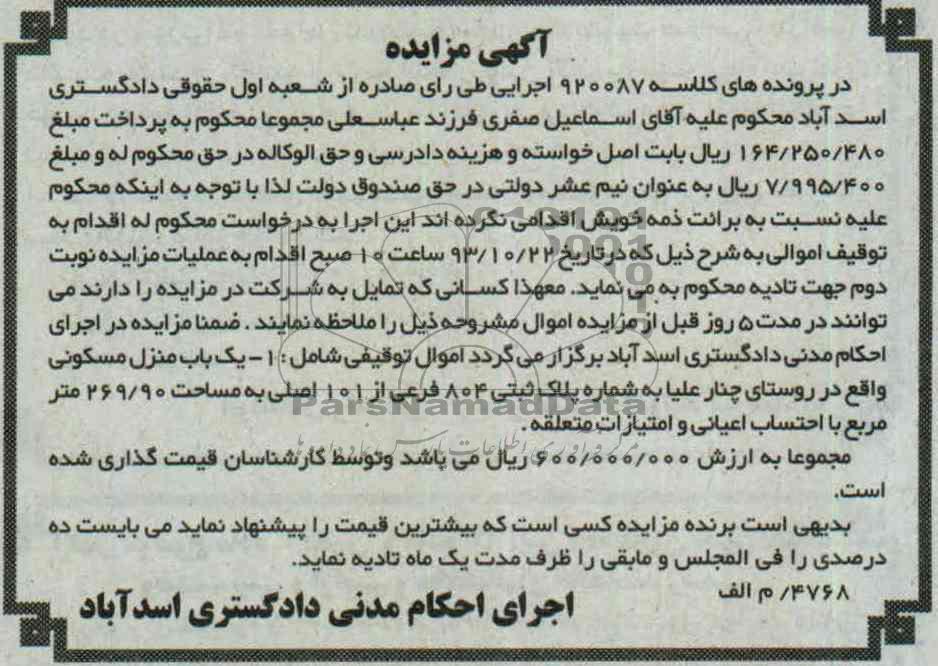 آگهی مزایده
در پرونده های کلاسه ۹۲۰۰۸۷ اجرایی طی رای صادره از شعبه اول حقوقی دادگستری
اسد آباد محکوم علیه آقای اسماعیل صفری فرزند عباسعلی مجموعا محکوم به پرداخت مبلغ
۱۶۴/۲۵۰/۴۸۰ ریال بابت اصل خواسته و هزینه دادرسی و حق الوکاله در حق محکوم له و مبلغ
۷/۹۹۵/۴۰۰ ریال به عنوان نیم عشر دولتی در حق صندوق دولت لذا با توجه به اینکه محکوم
علیه نسبت به برائت ذمه خویش اقدامی نکرده اند این اجرا به درخواست محکوم له اقدام به
توقیف اموالی به شرح ذیل که در تاریخ ۹۳/۱۰/۲۲ ساعت ۱۰ صبح اقدام به عملیات مزایده نوبت
دوم جهت تادیه محکوم به می نماید. معهذا کسانی که تمایل به شرکت در مزایده را دارند می
توانند در مدت ۵ روز قبل از مزایده اموال مشروحه ذیل را ملاحظه نمایند. ضمنا مزایده در اجرای
احکام مدنی دادگستری اسد آباد برگزار می گردد اموال توقیفی شامل : ۱- یک باب منزل مسکونی
واقع در روستای چنار علیا به شماره پلاک ثبتی ۸۰۴ فرعی از ۱۰۱ اصلی به مساحت ۲۶۹/۹۰ متر
ParsNamadData
مربع با احتساب اعیانی و امتیازات متعلقه.
مجموعا به ارزش ۶۰۰/۰۰۰/۰۰۰ ریال می باشد وتوسط کارشناسان قیمت گذاری شده
است.
بدیهی است برنده مزایده کسی است که بیشترین قیمت را پیشنهاد نماید می بایست ده
درصدی را فی المجلس و مابقی را ظرف مدت یک ماه تادیه نماید.
۴۷۶۸/ م الف
اجرای احکام مدنی دادگستری اسدآباد